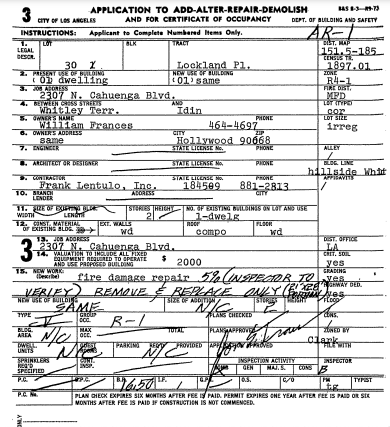 3 APPLICATION TO ADD-ALTER-REPAIR-DEMOLISH B&S B-3
CITY OF LOS ANGELES AND FOR CERTIFICATE OF OCCUPANCY DEPT. OF BUILDING AND SAFETY
INSTRUCTIONS: Applicant to Complete Numbered Items Only. AR-1
1. LEGAL DESCR. LOT BLK TRACT DIST. MAP
30 Lockland Pl. 151.5-185
CENSUS TR. 1897.01
2. PRESENT USE OF BUILDING NEW USE OF BUILDING ZONE
(01) dwelling (01) same R4-1
3. JOB ADDRESS FIRE DIST.
2307 N. Cahuenga Blvd. MFD
4. BETWEEN CROSS STREETS AND LOT (TYPE)
Whitley Terr. Idin cor
5. OWNER'S NAME PHONE LOT SIZE
William Frances 464-4697 irreg
6. OWNER'S ADDRESS CITY ZIP
same Hollywood 90668
7. ENGINEER STATE LICENSE No. PHONE ALLEY
8. ARCHITECT OR DESIGNER STATE LICENSE No. PHONE BLDG. LINE
hillside
9. CONTRACTOR STATE LICENSE No. PHONE AFFIDAVITS
Frank Lentulo, Inc. 184509 881-2813
10. BRANCH LENDER ADDRESS
11. SIZE OF EXISTING BLDG. STORIES HEIGHT NO. OF EXISTING BUILDINGS ON LOT AND USE
WIDTH LENGTH 2 1-dwelg
12. CONST. MATERIAL OF EXISTING BLDG. EXT. WALLS ROOF FLOOR
wd compo wd
3 13. JOB ADDRESS DIST. OFFICE
2307 N. Cahuenga Blvd. LA
14. VALUATION TO INCLUDE ALL FIXED EQUIPMENT REQUIRED TO OPERATE AND USE PROPOSED BUILDING $ 2000
GRADING
yes
15. NEW WORK: (Describe) fire damage repair 5% (INSPECTOR TO
VERIFY) REMOVE & REPLACE ONLY
HIGHWAY DED.
yes
NEW USE OF BUILDING SIZE OF ADDITION STORIES HEIGHT FLOOD
SAME N/C 2
TYPE GROUP OCC. PLANS CHECKED CONS.
V R-1
BLDG. AREA MAX OCC. TOTAL PLANS APPROVED ZONED BY
N/C Clark
DWELL. UNITS GUEST ROOMS PARKING REQ'D PROVIDED FILE WITH
N/C N/C
SPRINKLERS REQ'D SPECIFIED CONT. INSP. INSPECTION ACTIVITY INSPECTOR
COMB GEN MAJ. S. CONS B
P.C. S.P.C. B.P. I.F. G.P. O.S. C/O TYPIST
16.50 tg
P.C. No. PLAN CHECK EXPIRES SIX MONTHS AFTER FEE IS PAID. PERMIT EXPIRES ONE YEAR AFTER FEE IS PAID OR SIX MONTHS AFTER FEE IS PAID IF CONSTRUCTION IS NOT COMMENCED.
ONLY